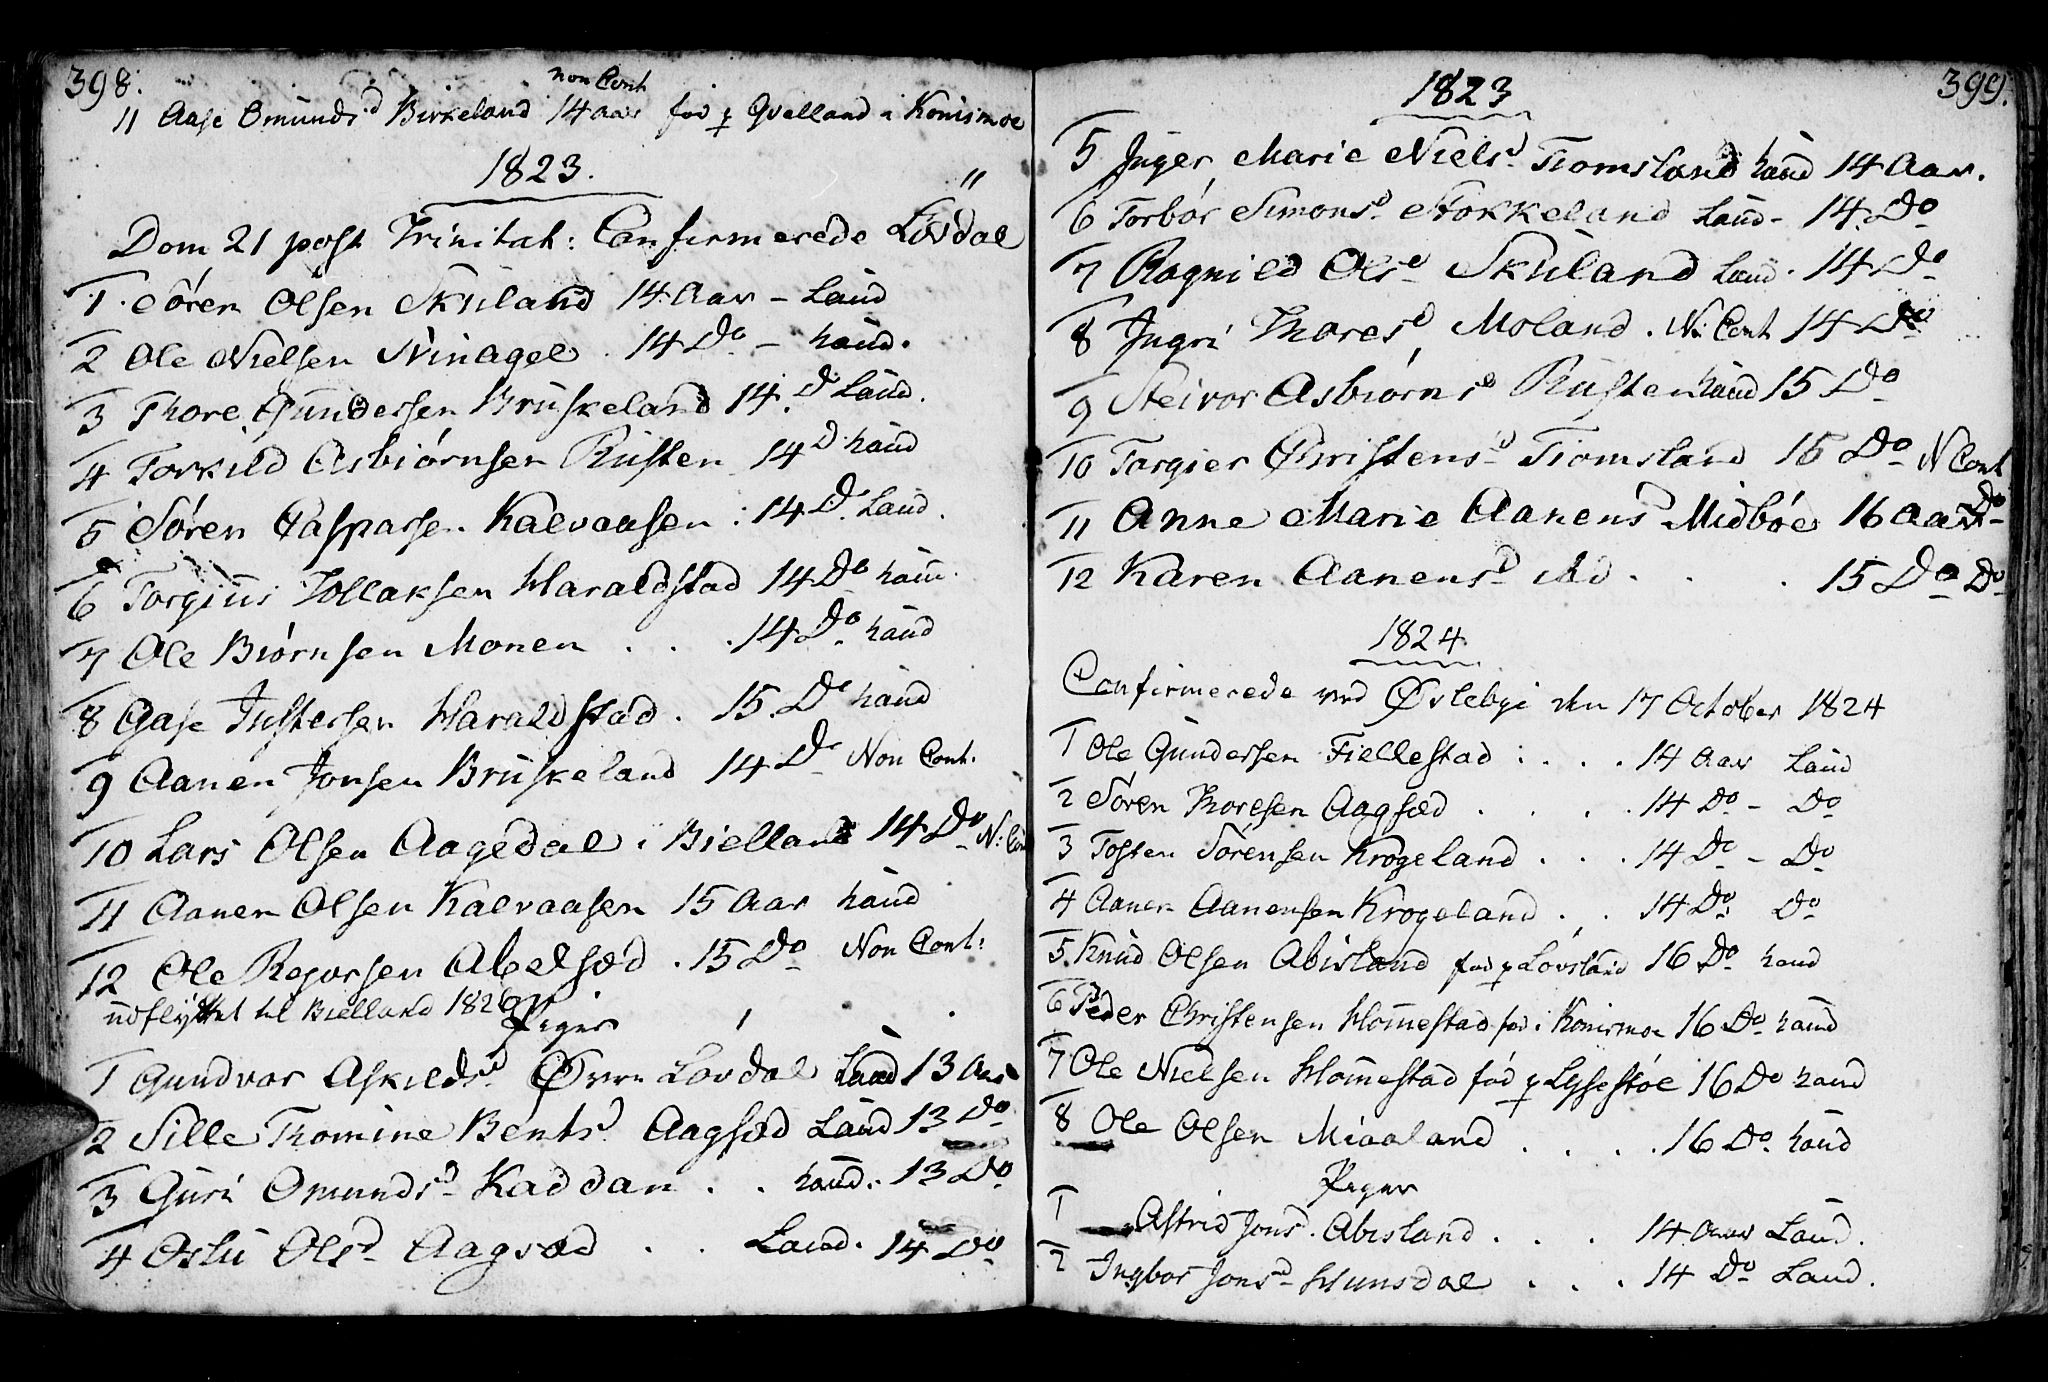 398.
non Cont
11 Aase Omunds.d Birkeland 14 aar fød p Qvelland i Konismoe
1823.
Dom 21 post Trinitat: Confirmerede Løvdal
1. Sören Olsen Skuiland 14 Aar - Laud
2 Ole Nielsen Svinagel. 14 Do - haud.
3 Thore Gundersen Bruskeland 14. D Laud.
4 Torkild Asbiørnsen Rusten 14 D haud
5 Søren Casparsen Kalvaasen: 14 D. Laud.
6 Torgius Tollaksen Haraldstad 14 Do haud.
7 Ole Biørnsen Monen . . . 14 Do haud
8 Aase Justersen Haraldstad. 15. Do haud
9 Aanen Jonsen Bruskeland 14 Do Non Cont.
10 Lars Olsen Aagedal i Bielland 14 Do N: Con
11 Aanen Olsen Kalvaasen 15 Aar haud
12 Ole Reyersen Abelsæd. 15 Do Non Cont:
udflyttet til Bielland 1826
Piger
1 Gundvor Askilds.d Øvre Løvdal Laud 13 Aar
2 Sille Thomine Bents.d Aagsæd Laud 13 Do
3 Guri Omunds.d Kaddan . . haud. 13 Do
4 Oslu Ols.d Aagsæd . . Laud. 14 Do
1823
399.
5 Inger Marie Niels.d Tiomsland haud 14 Aar.
6 Torbør Simons.d Stokkeland Laud - 14. Do
7 Ragnild Ols.d Skuiland Laud. 14 Do
8 Ingri Thores.d Moland. N: Cont 14 Do
9 Steivor Asbiørns.d Rusten haud 15 Do
10 Torgier Christens.d Tiomsland 15 Do N Cont
11 Anne Marie Aanens.d Midbøe 16 Aar Do
12 Karen Aanens.d ibd . . . 15 Do Do
1824
Confirmerede ved Øslebye den 17 October 1824
1 Ole Gundersen Fiellestad : . . . 14 Aar Laud
2 Søren Thoresen Aagsæd . . . . 14 Do - Do
3 Tosten Sörensen Krogeland . . . 14 Do - Do
4 Aanen Aanensen Krogeland . . 14 Do. Do
5. Knud Olsen Abisland fød p Løvsland 16 Do haud
6 Peder Christensen Hommestad fød i Konismoe 16 Do haud
7 Ole Nielsen Hommestad fød p Lyssestøe 16 Do haud
8 Ole Olsen Miaaland . . . . 16 Do. haud
Piger
1 Astrid Jons.d Abisland . . . 14 Aar Laud.
2 Ingbor Jons.d Hunsdal . . . 14 Do Laud.